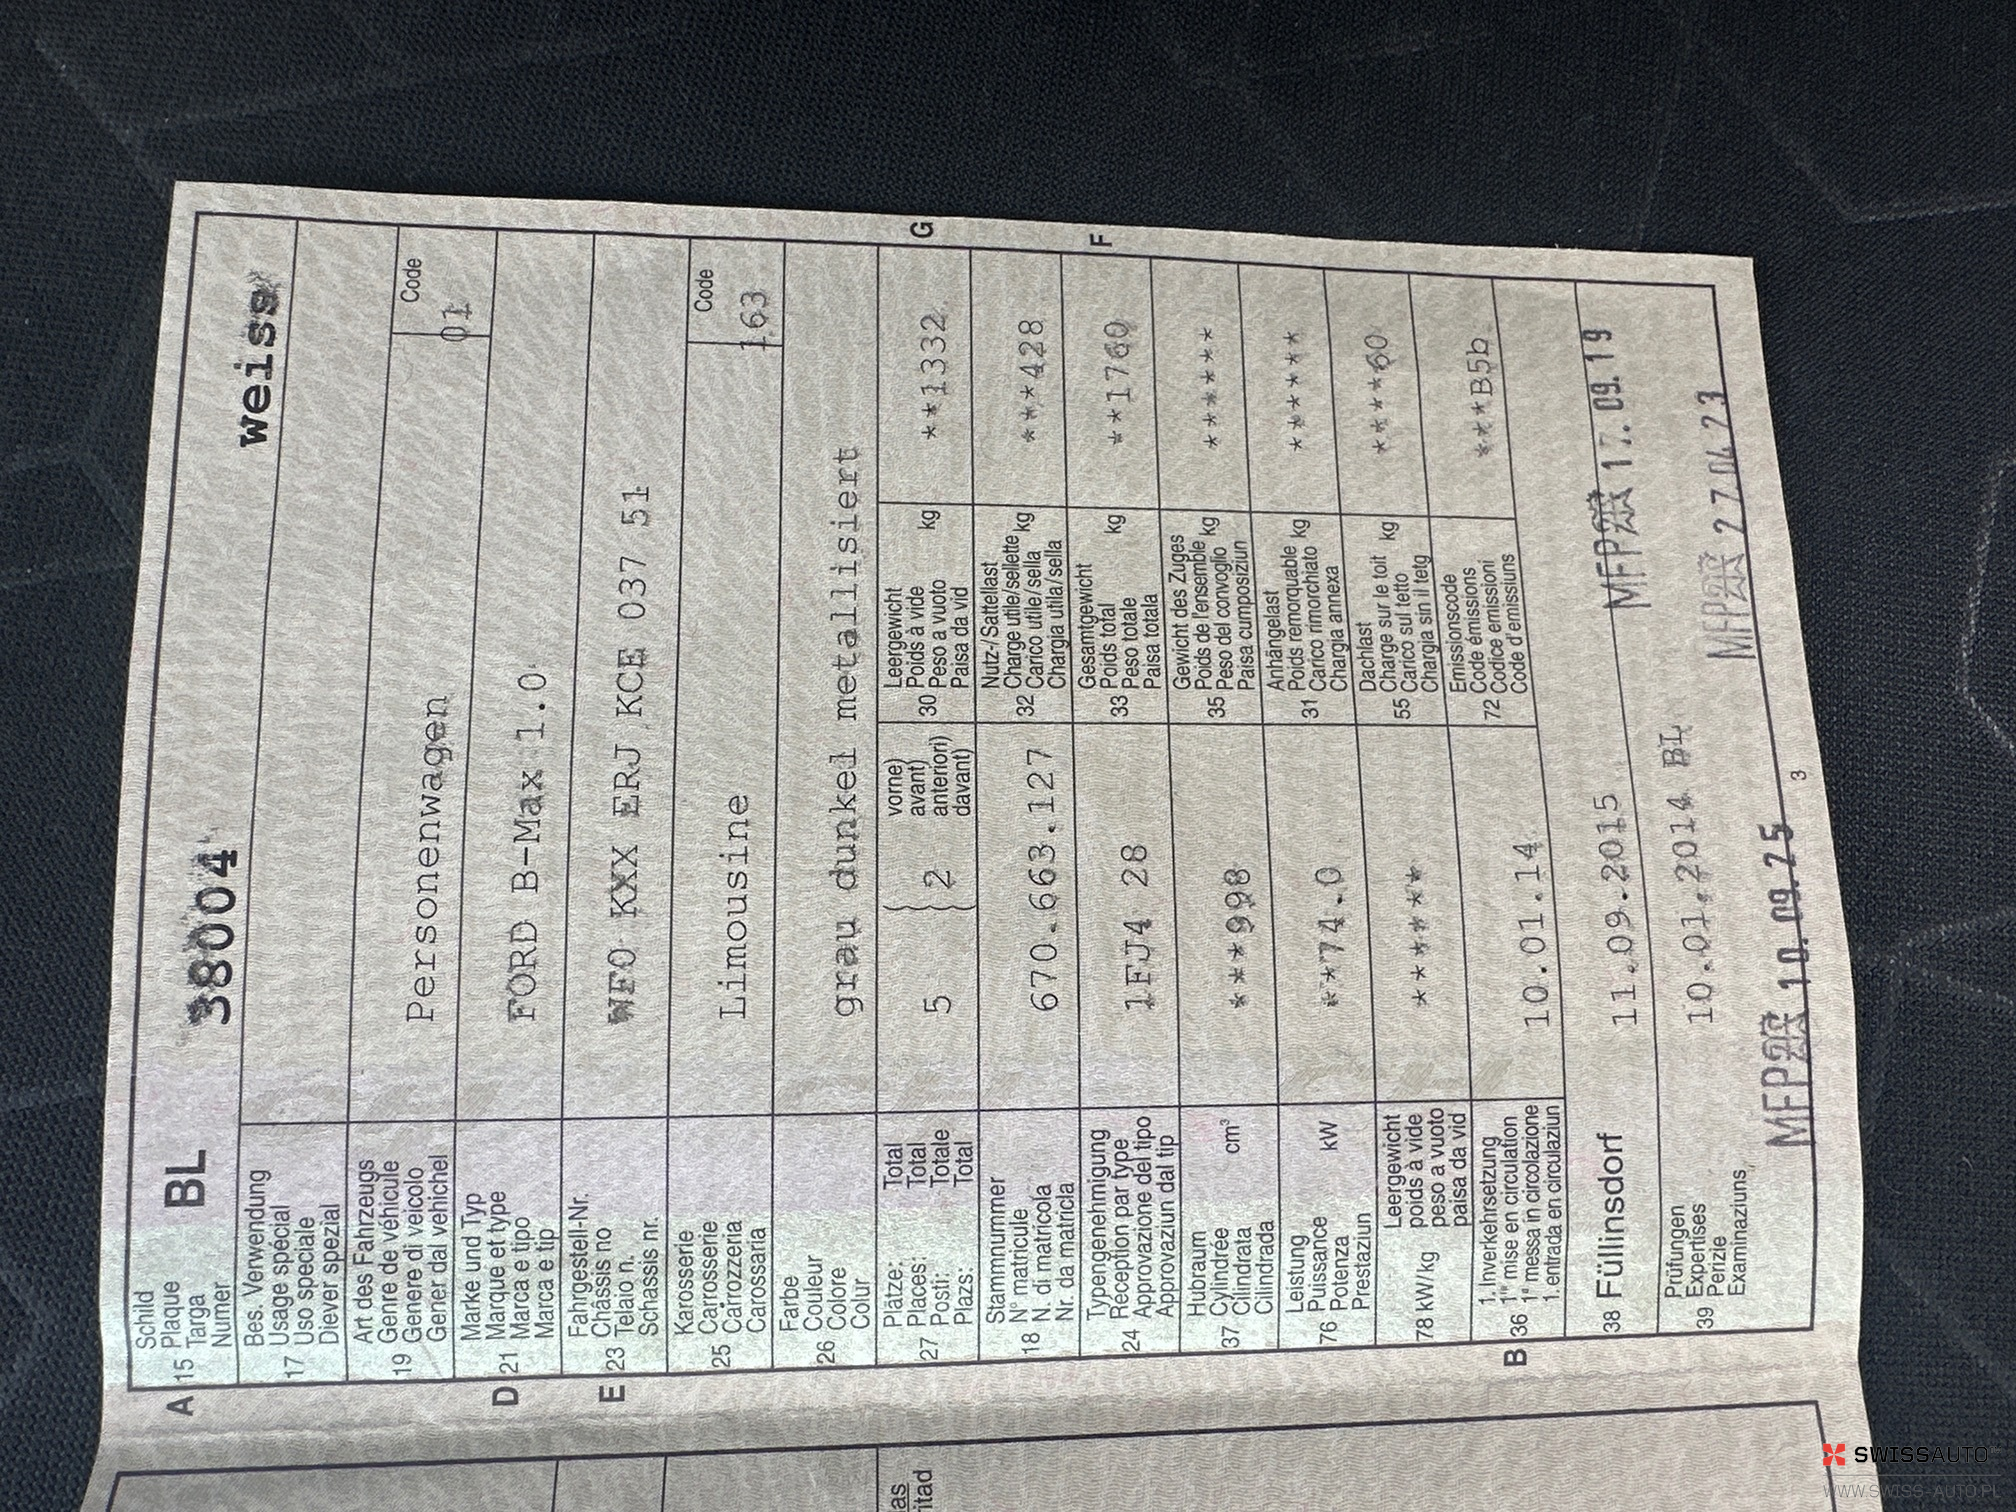 Schild
Plaque
A 15 Targa
Numer
BL 38004 weiss
Bes. Verwendung
Usage spécial
17 Uso speciale
Diever spezial
Art des Fahrzeugs
Genre de véhicule
19 Genere di veicolo
Gener dal vehichel
Personenwagen
Code
01
Marke und Typ
D 21 Marque et type
Marca e tipo
Marca e tip
FORD B-Max 1.0
Fahrgestell-Nr.
E 23 Châssis no
Telaio n.
Schassis nr.
WF0 KXX ERJ KCE 037 51
Karosserie
Carrosserie
25 Carrozzeria
Carossaria
Limousine
Code
163
Farbe
Couleur
26 Colore
Colur
grau dunkel metallisiert
Plätze: Total
Places: Total
27 Posti: Totale
Plazs: Total
5 2
vorne)
avant)
anteriori)
davant)
Leergewicht
30 Poids à vide
Peso a vuoto kg
Paisa da vid
**1332 G
Stammnummer
N° matricule
18 N. di matricola
Nr. da matricla
670.663.127
Nutz-/Sattellast
Charge utile/sellette kg
32 Carico utile/sella
Chargia utila/sella
***428
Typengenehmigung
24 Réception par type
Approvazione del tipo
Approvaziun dal tip
1FJ4 28
Gesamtgewicht
33 Poids total kg
Peso totale
Paisa totala
**1760 F
Hubraum
37 Cylindrée cm³
Cilindrata
Cilindrada
***998
Gewicht des Zuges
Poids de l'ensemble kg
35 Peso del convoglio
Paisa cumposiziun
******
Leistung
76 Puissance kW
Potenza
Prestaziun
**74.0
Anhängelast
Poids remorquable kg
31 Carico rimorchiato
Chargia annexa
******
Leergewicht
78 kW/kg poids à vide
peso a vuoto
paisa da vid
******
Dachlast
Charge sur le toit kg
55 Carico sul tetto
Chargia sin il tetg
****60
1. Inverkehrsetzung
B 36 1re mise en circulation
1a messa in circolazione
1. entrada en circulaziun
10.01.14
Emissionscode
Code émissions
72 Codice emissioni
Code d'emissiuns
***B5b
38 Füllinsdorf 11.09.2015 MFP 17.09.19
Prüfungen
39 Expertises
Perizie
Examinaziuns
10.01.2014 BL MFP 27 04 23
MFP 10.09.25
3
SWISSAUTO
WWW.SWISS-AUTO.PL